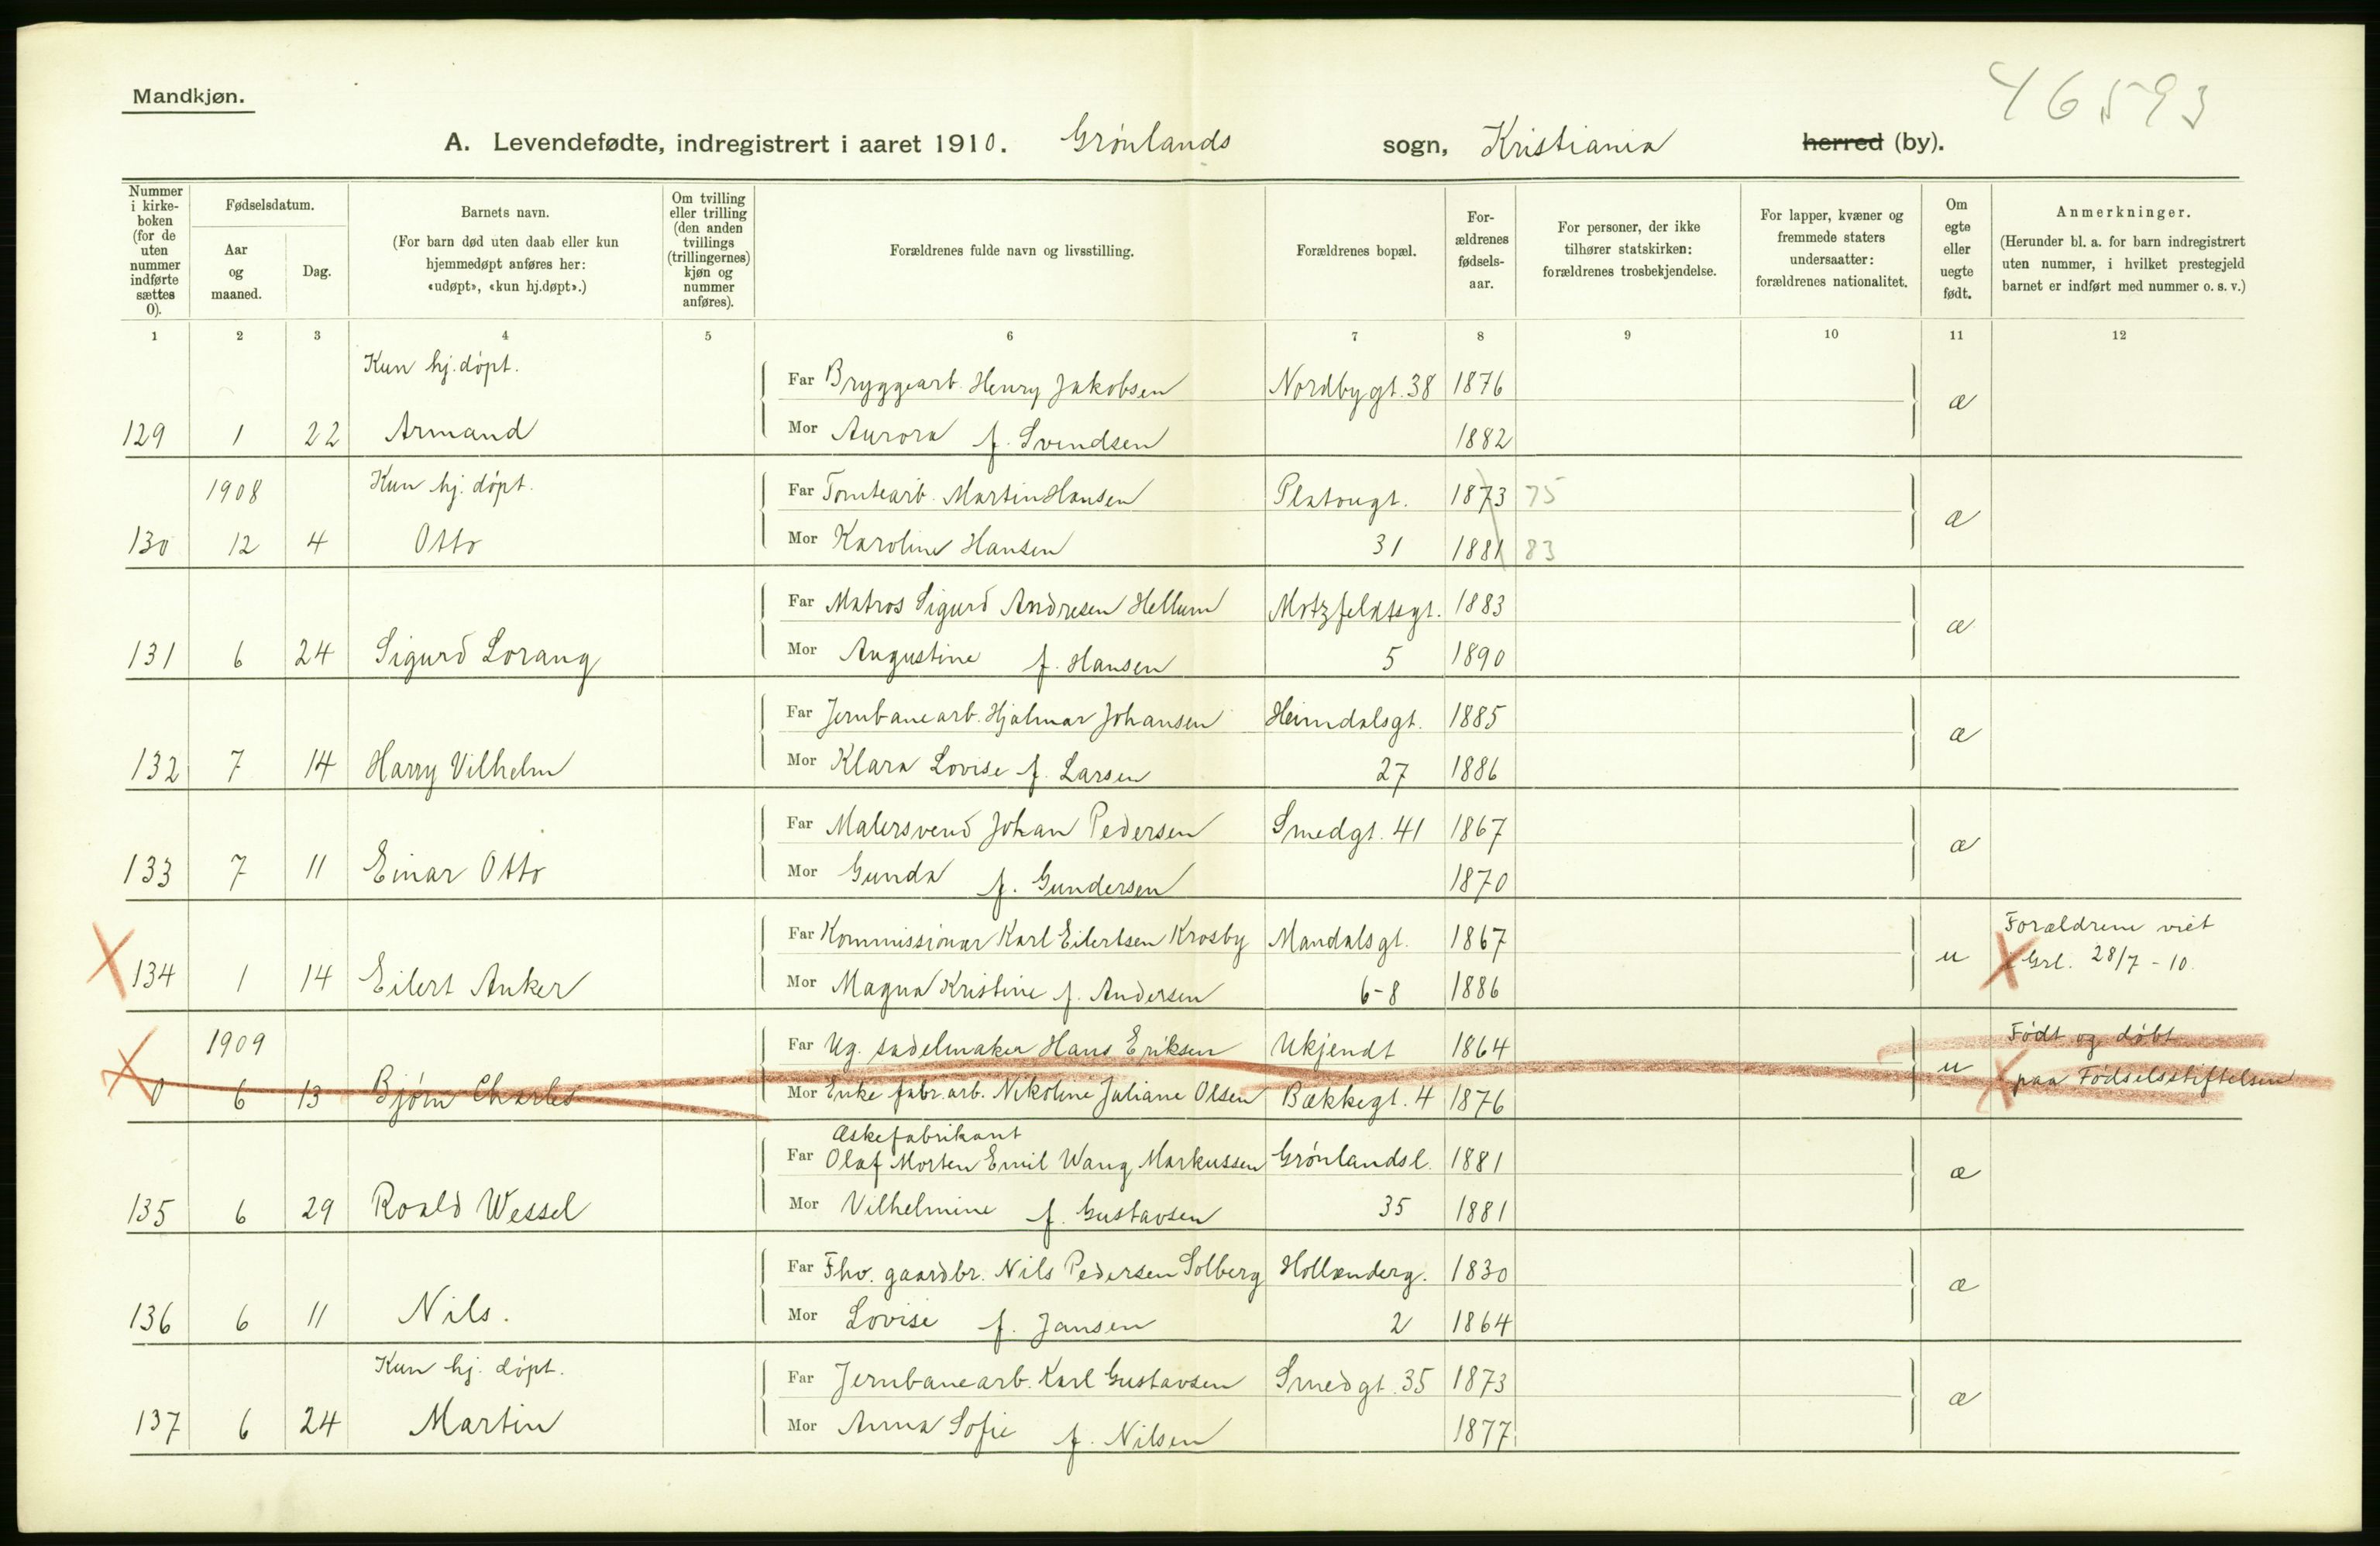 46593
Mandkjøn.
A. Levendefødte, indregistrert i aaret 1910. Grønlands sogn, Kristiania herred (by).
Nummer i kirkeboken (for de uten nummer indførte sættes 0). | Fødselsdatum. Aar og maaned. | Dag. | Barnets navn. (For barn død uten daab eller kun hjemmedøpt anføres her: «udøpt», «kun hj.døpt».) | Om tvilling eller trilling (den anden tvillings (trillingernes) kjøn og nummer anføres). | Forældrenes fulde navn og livsstilling. | Forældrenes bopæl. | For-ældrenes fødsels-aar. | For personer, der ikke tilhører statskirken: forældrenes trosbekjendelse. | For lapper, kvæner og fremmede staters undersaatter: forældrenes nationalitet. | Om egte eller uegte født. | Anmerkninger. (Herunder bl. a. for barn indregistrert uten nummer, i hvilket prestegjeld barnet er indført med nummer o. s. v.)
1 2 3 4 5 6 7 8 9 10 11 12
Kun hj. døpt.
Far Bryggearb. Henry Jakobsen Nordbygt. 38 1876 æ
129 1 22 Armand Mor Aurora f. Svendsen 1882
1908 Kun hj. døpt. Far Tomtearb. Martin Hansen Platougt. 1873 75 æ
130 12 4 Otto Mor Karoline Hansen 31 1881 83
Far Matros Sigurd Andresen Hellum Motzfeldtsgt. 1883 æ
131 6 24 Sigurd Lorang Mor Augustine f. Hansen 5 1890
Far Jernbanearb. Hjalmar Johansen Heimdalsgt. 1885 æ
132 7 14 Harry Vilhelm Mor Klara Lovise f. Larsen 27 1886
Far Malersvend Johan Pedersen Smedgt. 41 1867 æ
133 7 11 Einar Otto Mor Gunda f. Gundersen 1870
Far Kommissionær Karl Eilertsen Krosby Mandalsgt. 1867 u Forældrene viet
134 1 14 Eilert Anker Mor Magna Kristine f. Andersen 6-8 1886 X Grl. 28/7 - 10.
1909 Far Ug. sadelmaker Hans Eriksen Ukjendt 1864 u Født og døbt
0 6 13 Bjørn Charles Mor Enke fabr.arb. Nikoline Juliane Olsen Bækkegt. 4 1876 X paa Fødselsstiftelsen
Æskefabrikant
Far Olaf Morten Emil Wang Markussen Grønlandsl. 1881 æ
135 6 29 Roald Wessel Mor Vilhelmine f. Gustavsen 35 1881
Far Fhv. gaardbr. Nils Pedersen Solberg Hollænderg. 1830 æ
136 6 11 Nils. Mor Lovise f. Jansen 2 1864
Kun hj. døpt. Far Jernbanearb. Karl Gustavsen Smedgt. 35 1873 æ
137 6 24 Martin Mor Anna Sofie f. Nilsen 1877